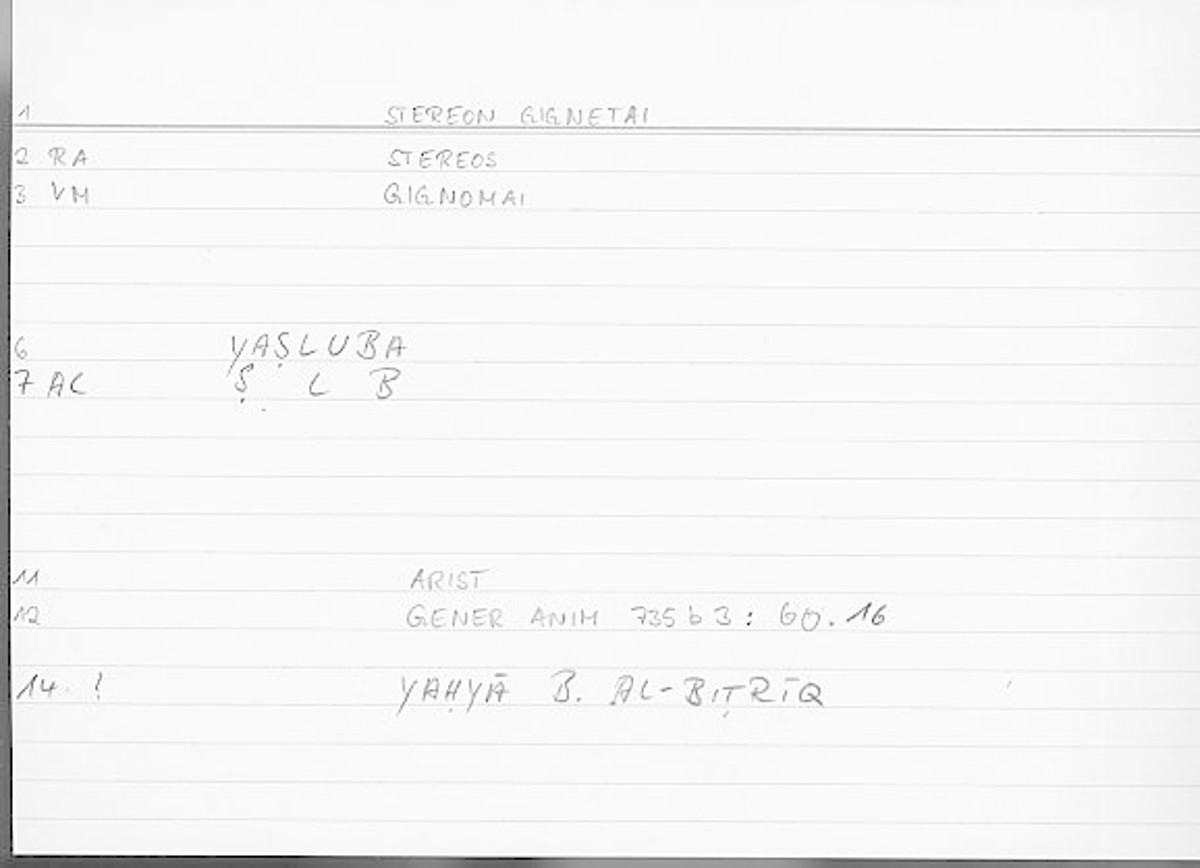 1 STEREON GIGNETAI
2 RA STEREOS
3 VM GIGNOMAI
6 YAṢLUBA
7 AC Ṣ L B
11 ARIST
12 GENER ANIM 735 b 3 : 60.16
14. ? YAḤYĀ B. AL-BIṬRĪQ